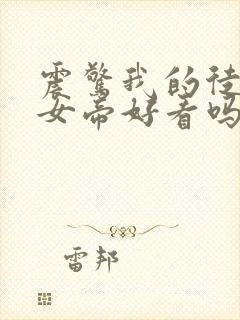 震惊我的徒
女帝好看吗
雷邦